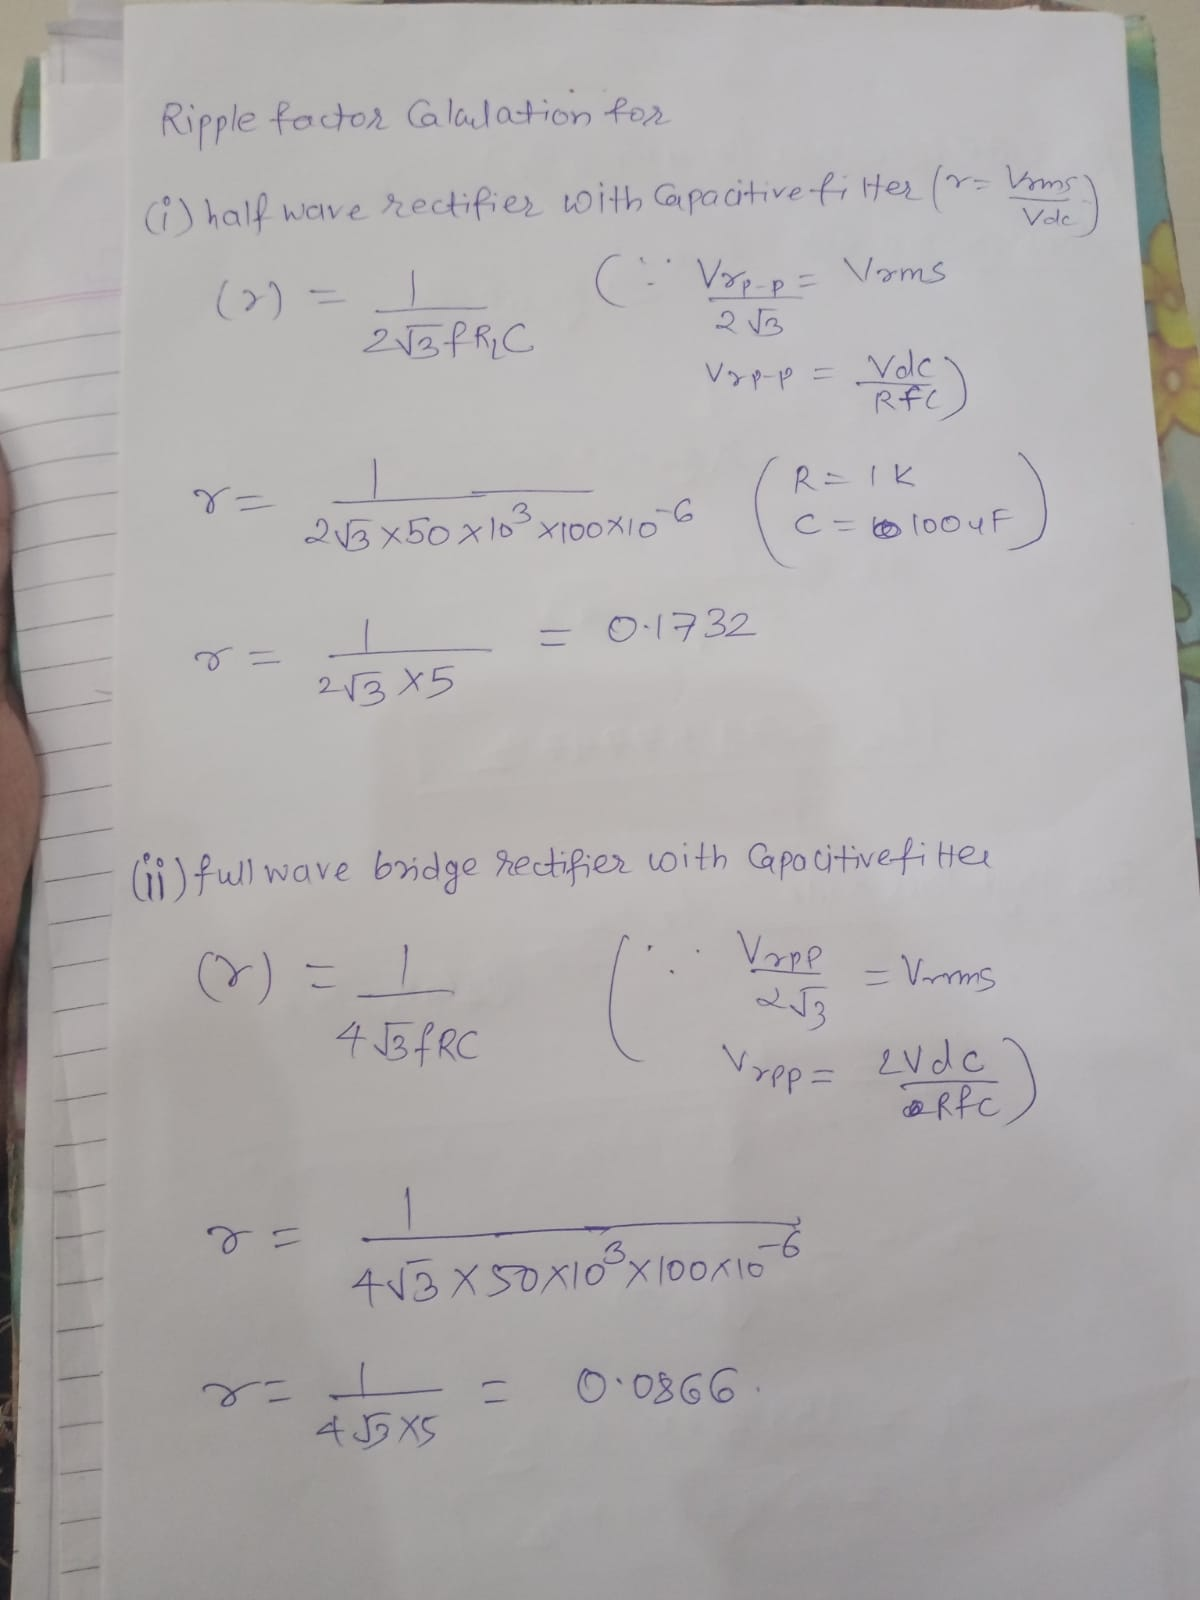 Ripple factor Calculation for
(i) half wave rectifier with Capacitive filter (r = Vrms/Vdc)
(r) = 1/(2√3 f R_L C) (∵ Vrp-p/(2√3) = Vrms
Vrp-p = Vdc/(RfC))
r = 1/(2√3 × 50 × 10³ × 100 × 10⁻⁶) (R = 1K
C = 100uF)
r = 1/(2√3 × 5) = 0.1732
(ii) full wave bridge rectifier with Capacitive filter
(r) = 1/(4√3 fRC) (∵ Vrpp/(2√3) = Vrms
Vrpp = 2Vdc/(RfC))
r = 1/(4√3 × 50 × 10³ × 100 × 10⁻⁶)
r = 1/(4√3 × 5) = 0.0866.